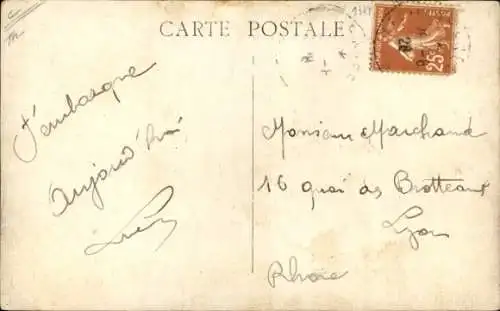 CARTE POSTALE
25
J'embarque
aujourd'hui
Monsieur Marchand
16 quai des Brotteaux
Lyon
Rhône